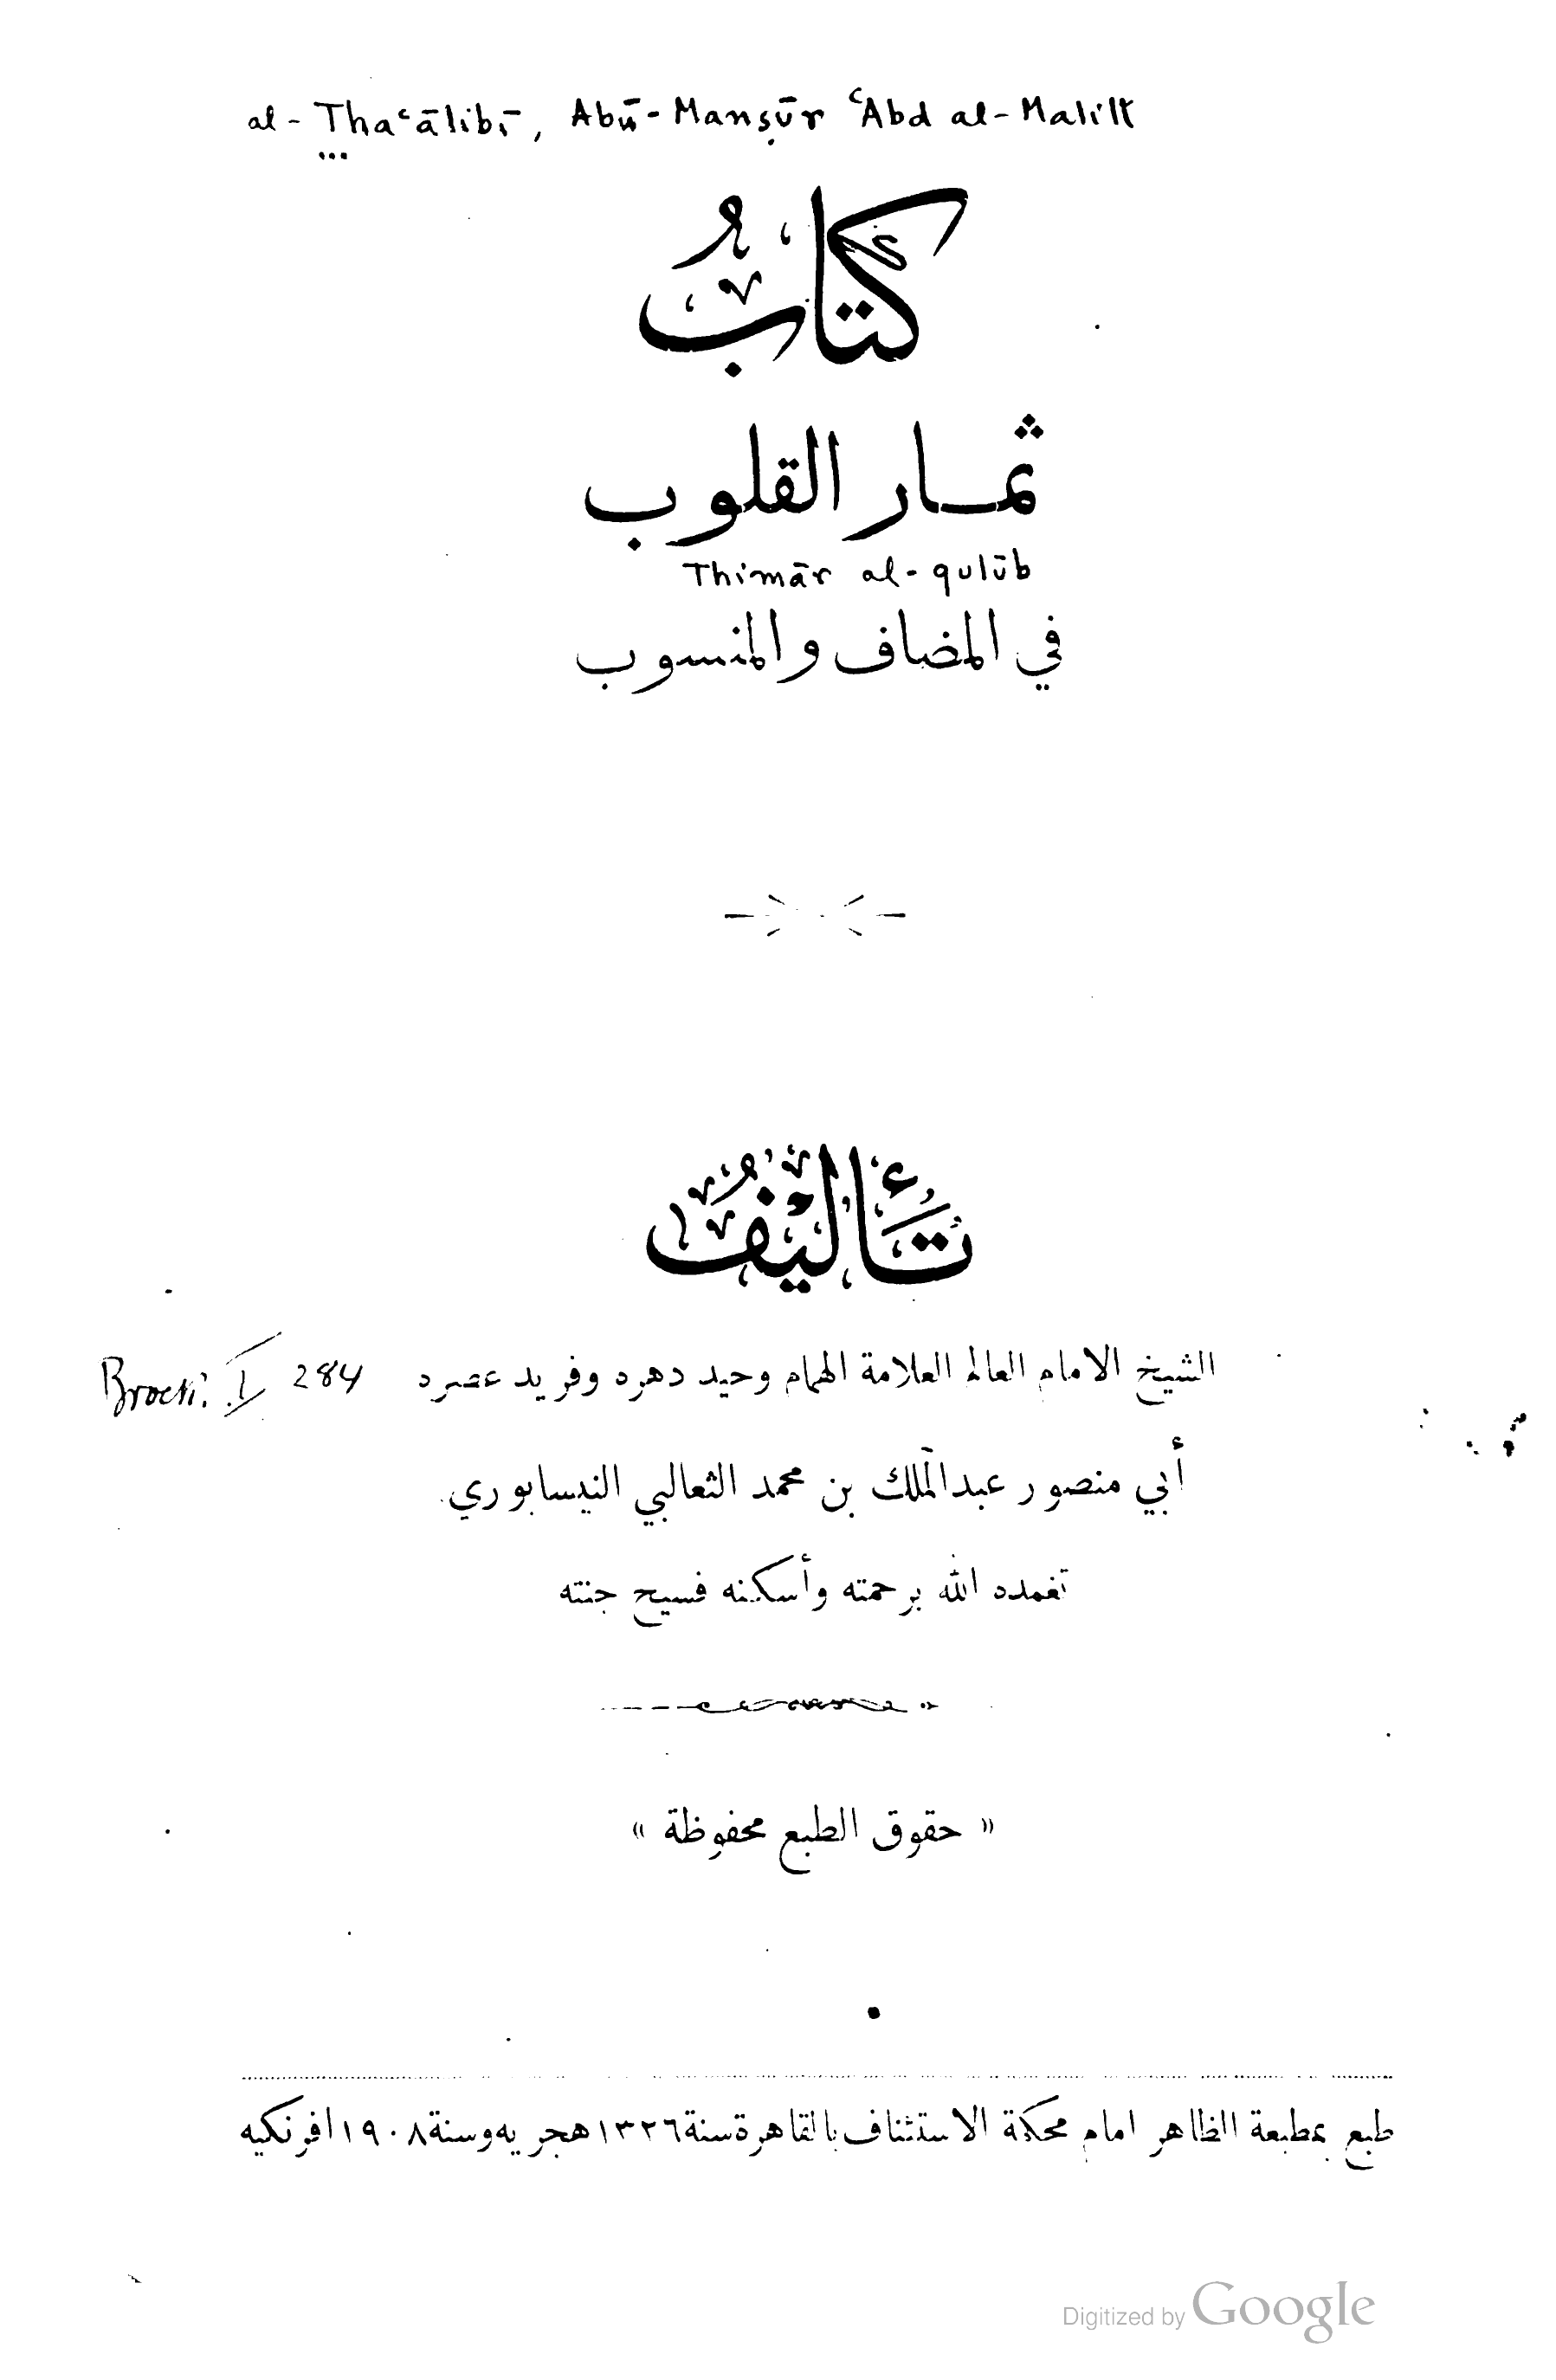 al-Thaʿālibī, Abū-Manṣūr ʿAbd al-Malik
كتابُ
ثمــار القلوب
Thimār al-qulūb
في المضاف والمنسوب
تَأْلِيْفُ
الشيخ الامام العالم العلامة الهمام وحيد دهره وفريد عصره
Brock. I 284
أبي منصور عبدالملك بن محمد الثعالبي النيسابوري
تغمده الله برحمته وأسكنه فسيح جنته
« حقوق الطبع محفوظة »
طبع بمطبعة الظاهر امام محكمة الاستئناف بالقاهرة سنة ١٣٢٦ هجريه وسنة ١٩٠٨ افرنكيه
Digitized by Google